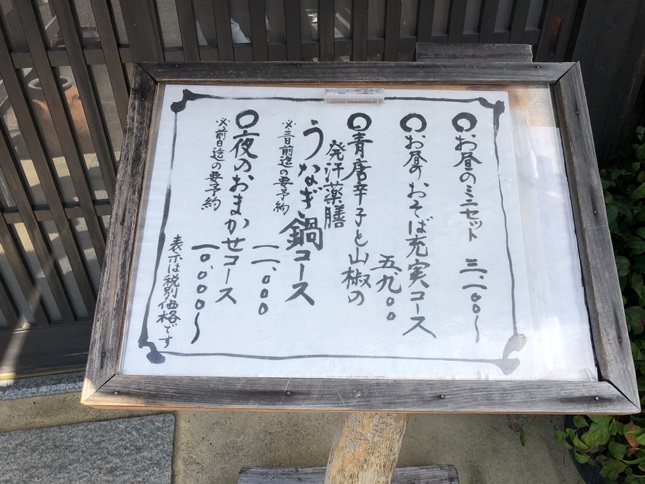 〇お昼のミニセット 三、一〇〇〜
〇お昼のおそば充実コース
五九〇〇
〇青唐辛子と山椒の
発汗薬膳
うなぎ鍋コース
※三日前迄の要予約
一一、〇〇〇
〇夜のおまかせコース
※前日迄の要予約
一〇、〇〇〇〜
表示は税別価格です